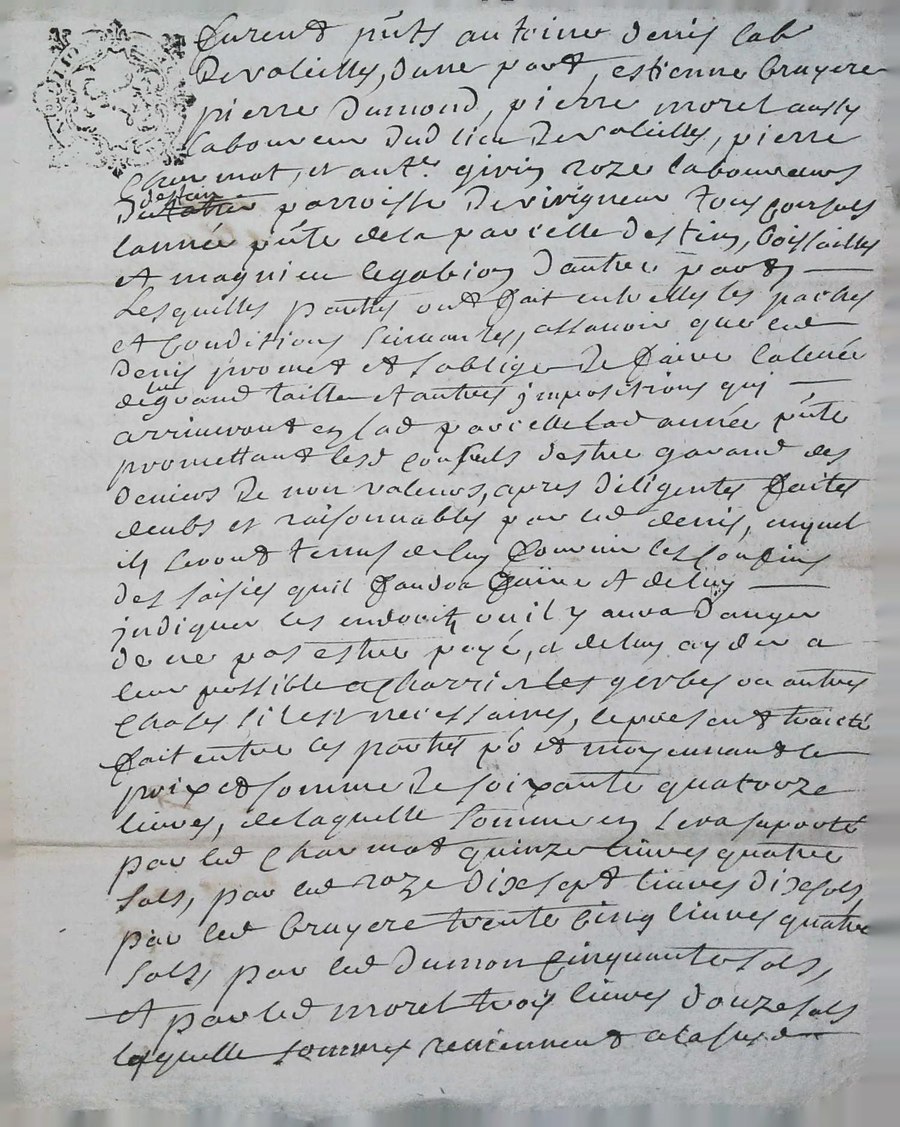 furent pnts antoine denis lab
de valeilles, dune part, estienne bruyere
pierre dumond, pierre morel aussy
laboureur dud lieu de valeilles, pierre
charmat, et ant.e givin roze laboureurs
destain
du parroisse de virigneu tous consuls
lannée pnte de la parcelle destin, boissailles
et magnieu legabion dautre part
Lesquelles parties ont fait entrelles les paches
et conditions suivantes, assavoir que led
denis promet et soblige de faire la levée
du grand taille et autres jmpositions qui
arriveront en lad parcelle lad année pnte
promettant lesd consuls destre garand des
deniers de non valeurs, apres diligentes faites
deubs et raisonnables par led denis, auquel
ils seront tenus de luy fournir les confins
des saisies quil faudra faire et de luy
jndiquer les endroits ou il y aura danger
de ne pas estre payé, et de luy ayder a
leur possible a charrier les gerbes ou autres
choses sil est necessaires, le present traicté
fait entre les parties pnt et moyennant le
prix et somme de soixante quatorze
livres, de laquelle somme en sera suporté
par led charmat quinze livres quatre
sols, par led roze dixsept livres dixsols,
par led bruyere trente cinq livres quatre
sols, par led dumon cinquante sols,
et par led morel trois livres douze sols
laquelle sommes reviennent a la susd